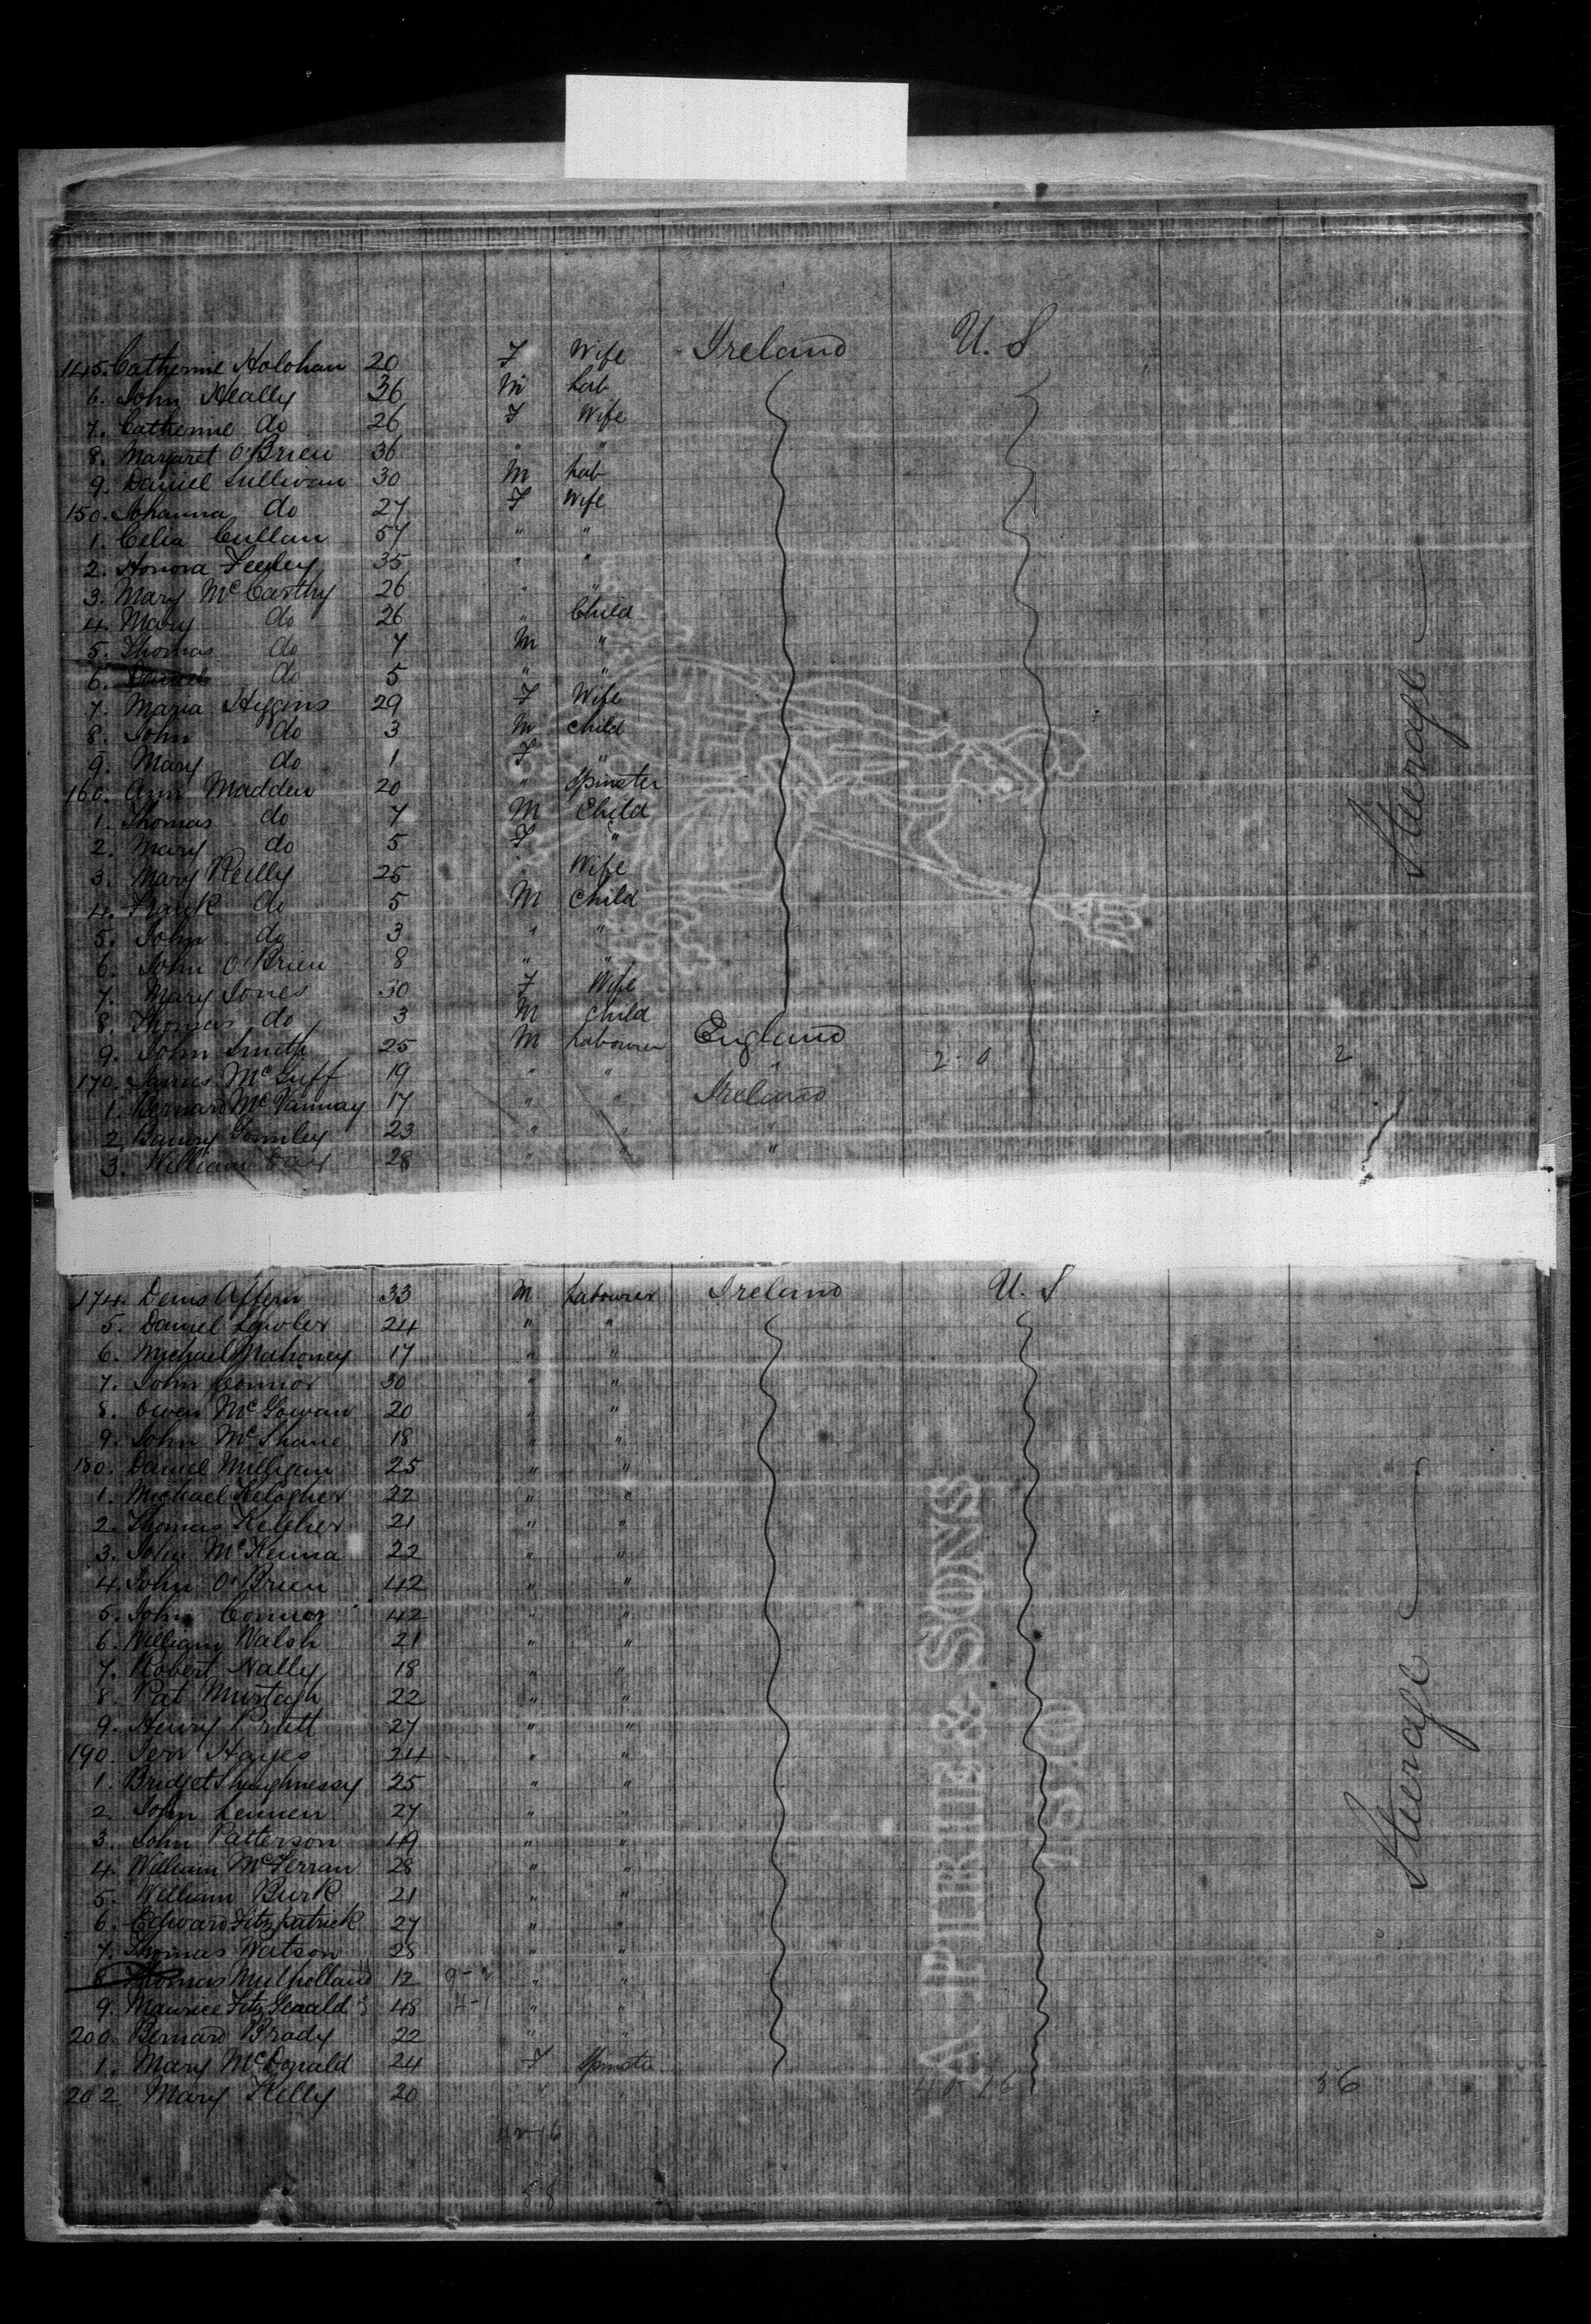 145. Catherine Holohan 20 F Wife Ireland U. S
6. John Neally 36 M Lab
7. Catherine do 26 F Wife
8. Margaret O'Brien 36 " "
9. Daniel Sullivan 30 M Lab
150. Johanna do 27 F Wife
1. Celia Cullan 57 " "
2. Honora Feeley 35 " "
3. Mary McCarthy 26 " "
4. Mary do 26 " Child
5. Thomas do 7 M "
6. do 5 " "
7. Maria Higgins 29 F Wife
8. John do 3 M Child
9. Mary do 1 F "
160. Ann Madden 20 " Spinster
1. Thomas do 7 M Child
2. Mary do 5 F "
3. Mary Reilly 25 " Wife
4. Frank do 5 M Child
5. John do 3 " "
6. John O'Brien 8 " "
7. Mary Jones 30 F Wife
8. Thomas do 3 M Child
9. John Smith 25 M Labourer England
170. James McGuff 19 " " "
2-0 2
1. Bernard McVannay 17 " " Ireland
2. Gormley 23 " " "
3. William 28 " " "
Steerage
174. Denis Affern 33 M Labourer Ireland U. S
5. Daniel Lawler 24 " "
6. Michael Mahoney 17 " "
7. John Connor 30 " "
8. Owen McGowan 20 " "
9. John McShane 18 " "
180. Daniel Milligan 25 " "
1. Michael Kelogher 22 " "
2. Thomas Kelcher 21 " "
3. John McKenna 22 " "
4. John O'Brien 42 " "
5. John Connor 42 " "
6. William Walsh 21 " "
7. Robert Nally 18 " "
8. Pat Murtagh 22 " "
9. Henry Pratt 27 " "
190. Jerr Hayes 24 " "
1. Bridget Shaughnessy 25 " "
2. John Lennen 27 " "
3. John Patterson 49 " "
4. William McFerran 28 " "
5. William Burk 21 " "
6. Edward Fitzpatrick 27 " "
7. Thomas Watson 28 " "
8. Thomas Mulholland 12 " "
9. Maurice FitzGerald 48 " "
200. Bernard Brady 22 " "
1. Mary McDonald 24 F Spinster
202 Mary Kelly 20 " "
Steerage
A PIRIE & SONS
1870